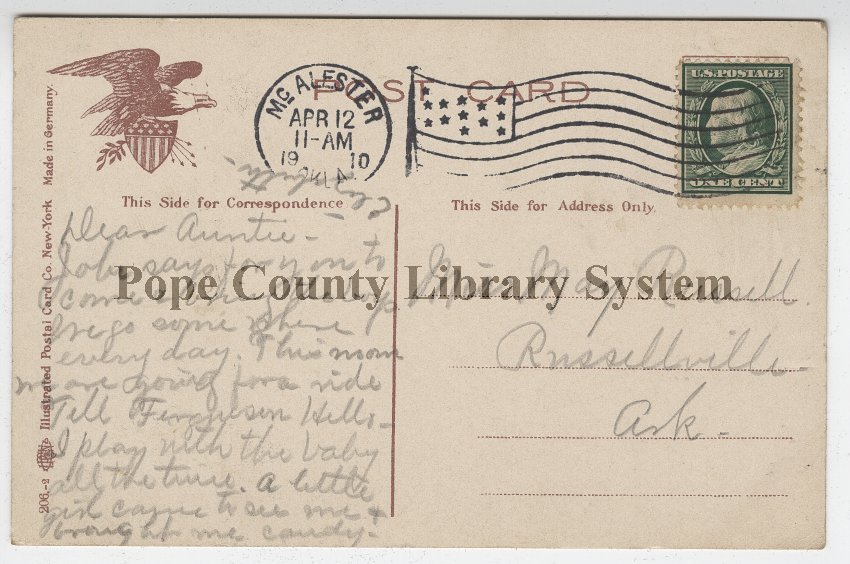 POST CARD
McALESTER
APR 12
11-AM
19 10
OKLA.
U.S. POSTAGE
ONE CENT
This Side for Correspondence
This Side for Address Only.
Made in Germany.
Illustrated Postal Card Co. New-York
206.-2
Pope County Library System
Dear Auntie-
says for you to
come
We go some where
every day. This morn
we are going for a ride
Tell Ferguson Hello-
I play with the baby
all the time. A little
girl came to see me &
brought me candy-
Miss May Russell.
Russellville-
Ark-